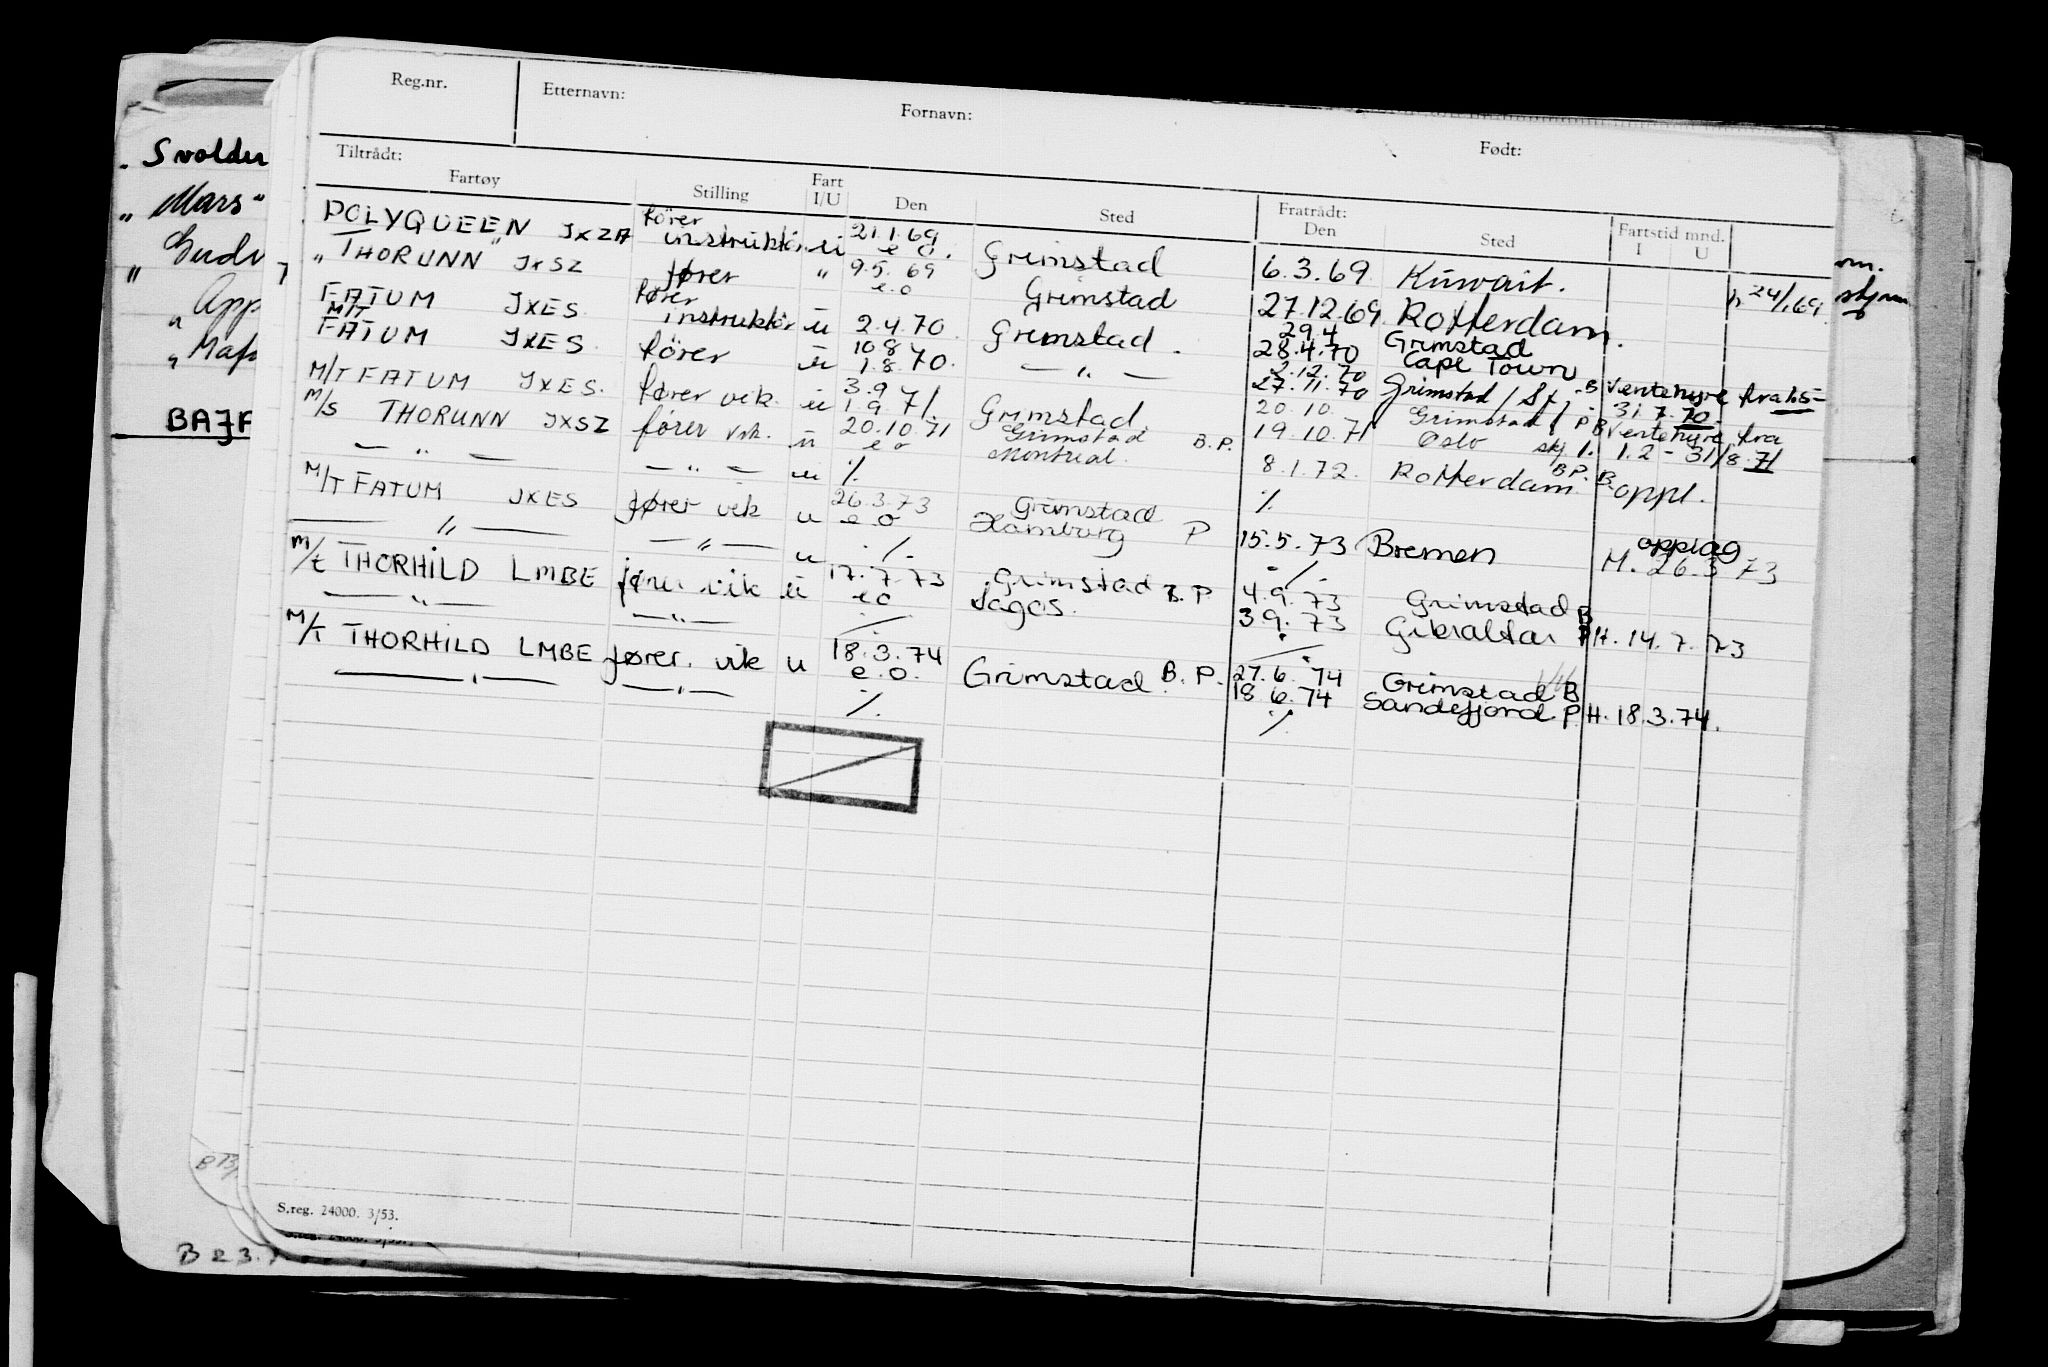 Reg.nr. Etternavn: Fornavn: Født:
Tiltrådt: Fratrådt:
Fartøy Stilling Fart I/U Den Sted Den Sted Fartstid mnd. I U
POLYQUEEN JXZA fører instruktör u 21.1.69 e o. Grimstad 6.3.69 Kuwait. 24/1.69
"THORUNN" JXSZ fører " 9.5.69 e.o Grimstad 27.12.69 Rotterdam.
FATUM JXES. fører instruktör u 2.4.70 Grimstad. 29.4 28.4.70 Grimstad Cape Town
M/T FATUM JXES fører u 10 8 1.8.70. — " — 2.12.70 27.11.70 Grimstad / B ventehyre fra 31.7.70
M/T FATUM JXES. fører vik. u 3.9 1.9.71. Grimstad 20.10. 19.10.71 Grimstad / Oslo P B Ventehyre fra 1.2 - 31/8.71
M/S THORUNN JXSZ fører vik. u 20.10.71 e o Grimstad Montreal. B.P. 8.1.72. Rotterdam. BP. B. oppl.
— " — — " — u ·/. ·/.
M/T FATUM JXES fører vik u 26.3.73 e o Grimstad Hamburg P 15.5.73 Bremen opplag M. 26.3 73
— " — — " — u ·/. ·/.
M/t THORHILD LMBE fører vik u 17.7.73 eo Grimstad Lagos. B.P 4.9.73 3.9.73 Grimstad B Gibraltar P H. 14.7.73
— " — — " — ·/. ·/.
M/T THORHILD LMBE fører. vik u 18.3.74 e.o. Grimstad B.P. 27.6.74 18.6.74 Grimstad B Sandefjord P H. 18.3.74.
— " — — " — ·/. ·/.
S.reg. 24000. 3/53.
Svolder
"Mars"
"
"
"
B 23.